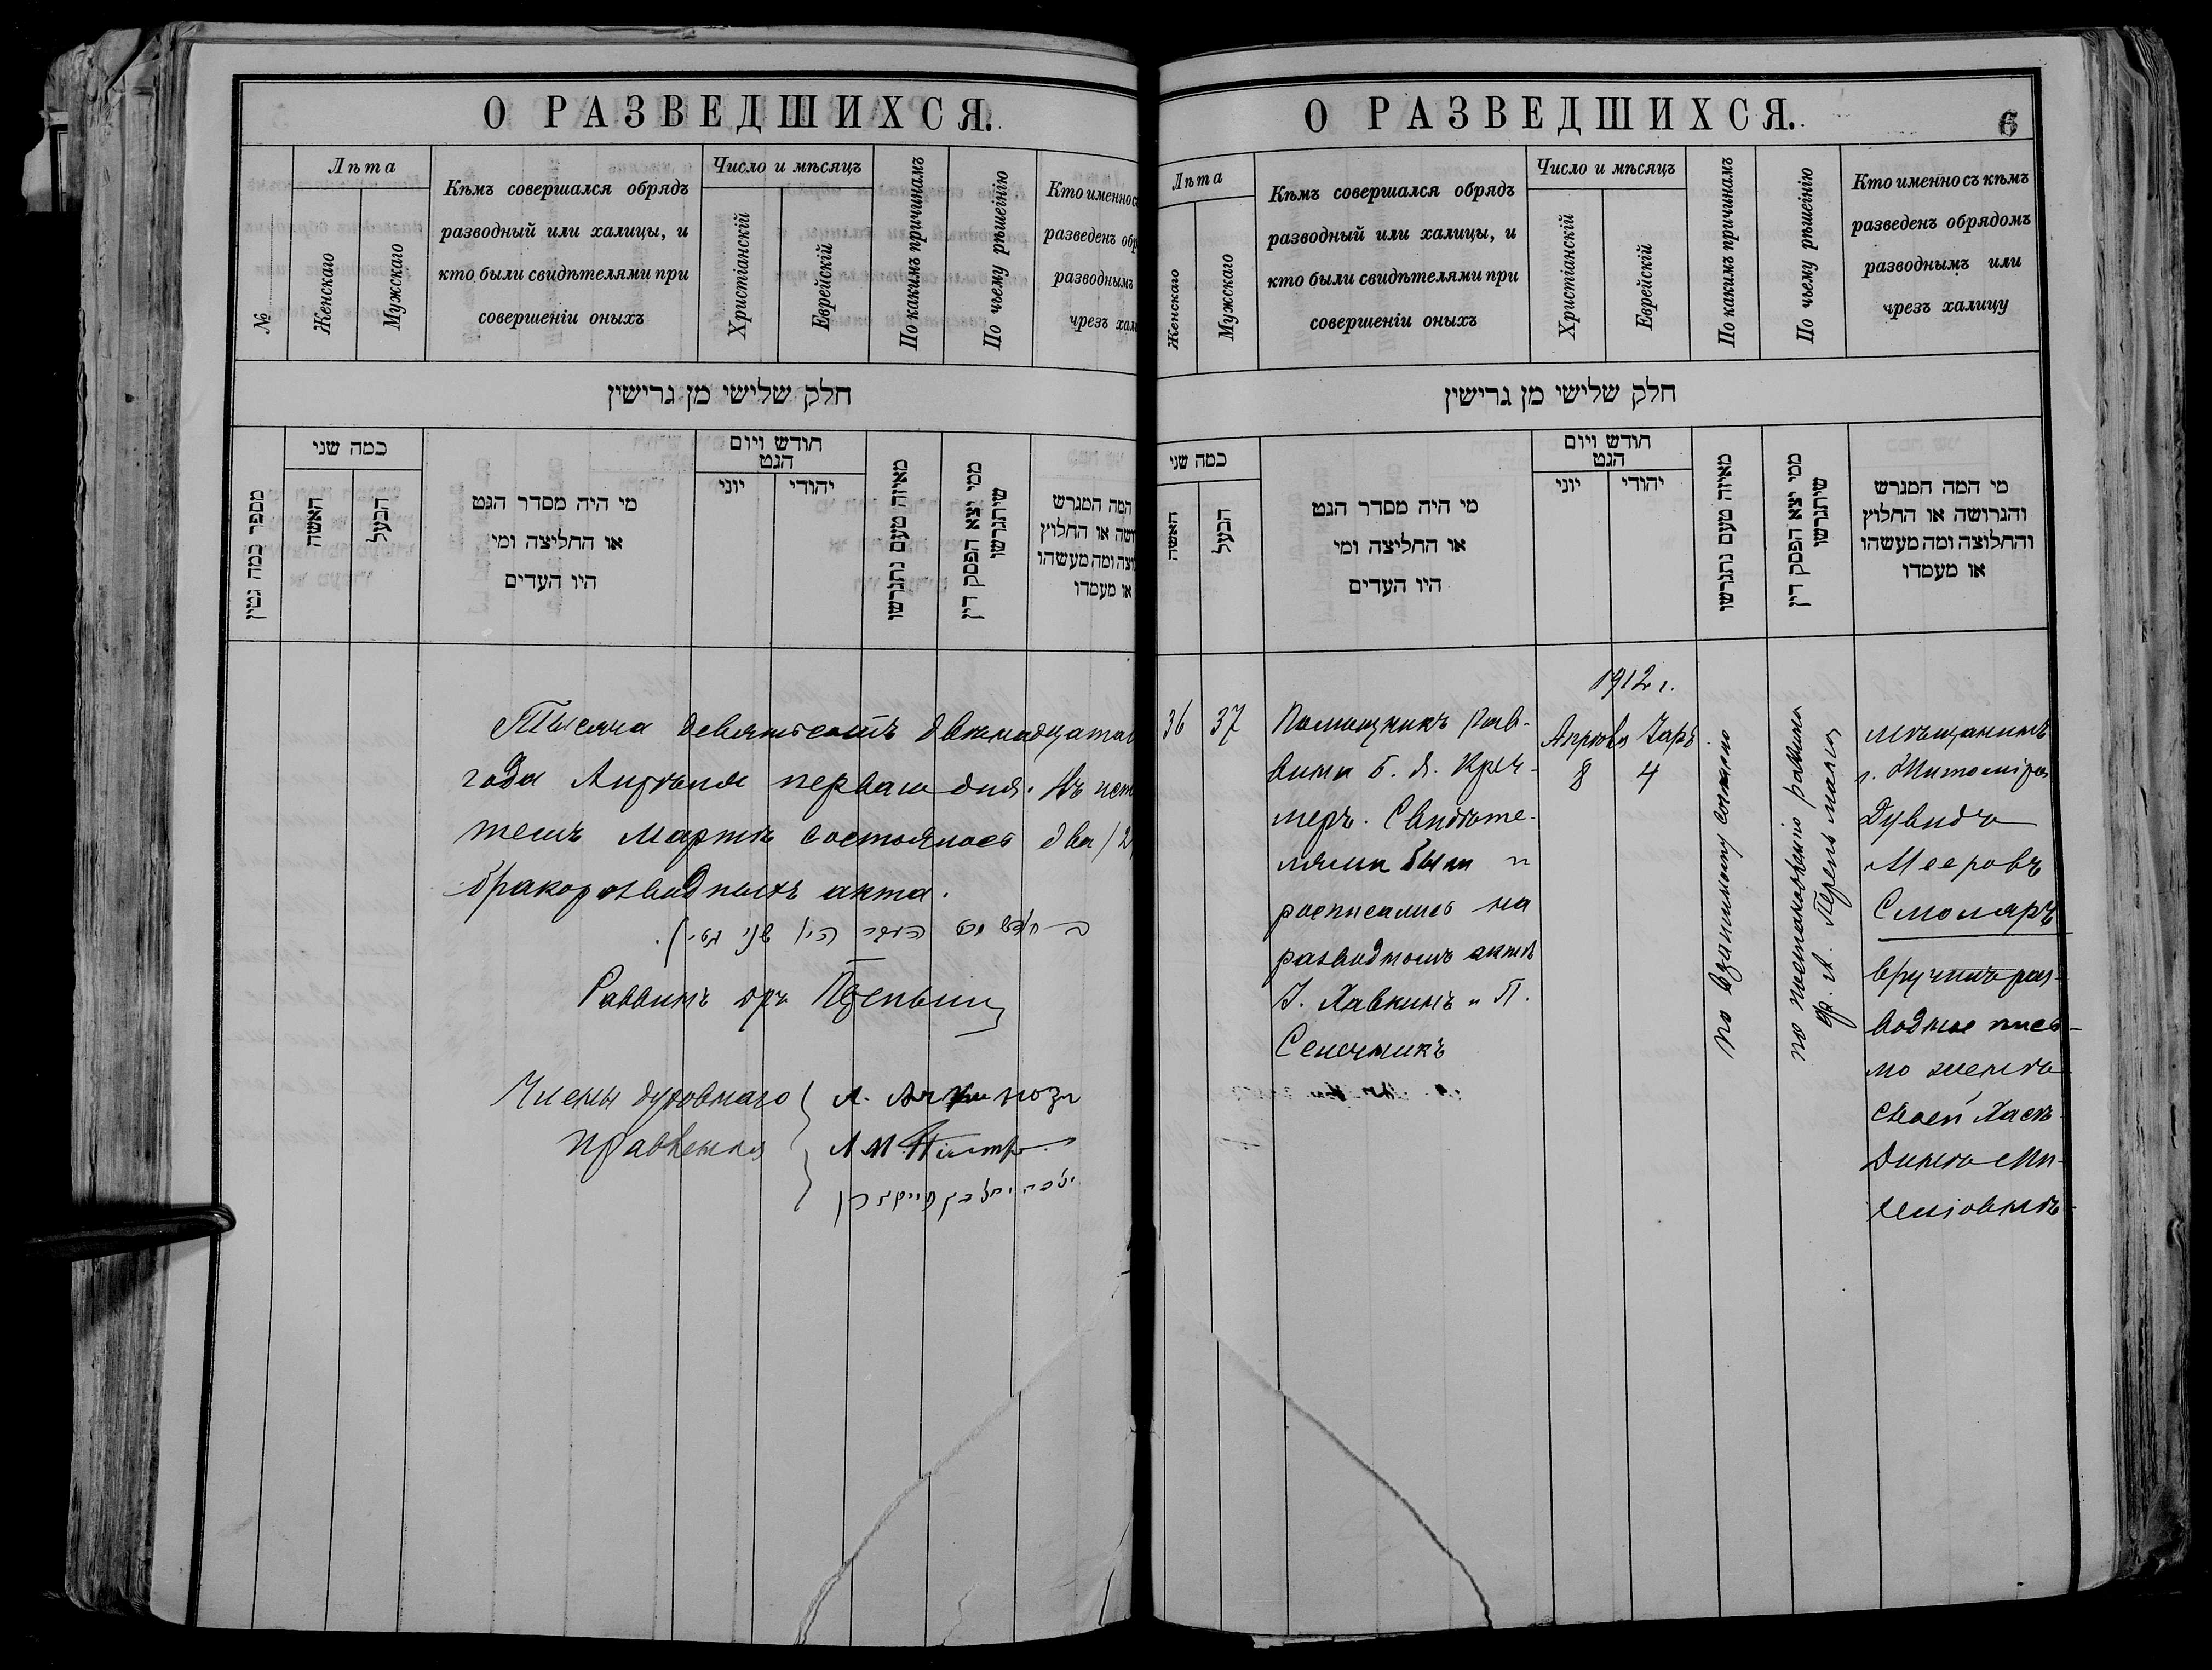 О РАЗВЕДШИХСЯ.
№
Лѣта
Женскаго
Мужскаго
Кѣмъ совершался обрядъ
разводный или халицы, и
кто были свидѣтелями при
совершеніи оныхъ
Число и мѣсяцъ
Христіанскій
Еврейскій
По какимъ причинамъ
По чьему рѣшенію
Кто именно съ
разведенъ обр
разводнымъ
чрезъ хал
חלק שלישי מן גרישין
מספר כמה גטין
כמה שני
האשה
הבעל
מי היה מסדר הגט
או החליצה ומי
היו העדים
חודש ויום
הגט
יוני
יהודי
מאיזה טעם נתגרשו
ממי יצא הפסק דין
שיתגרשו
המה המגרש
ושה או החלוץ
וצה ומה מעשהו
או מעמדו
Тысяча девятьсотъ двѣнадцатаго
года Апрѣля перваго дня. Въ ист
текшемъ Мартѣ состоялось два /2
бракоразводныхъ акта.
Раввинъ др
Члены духовнаго
правленія
О РАЗВЕДШИХСЯ.
6
Лѣта
Женскаго
Мужскаго
Кѣмъ совершался обрядъ
разводный или халицы, и
кто были свидѣтелями при
совершеніи оныхъ
Число и мѣсяцъ
Христіанскій
Еврейскій
По какимъ причинамъ
По чьему рѣшенію
Кто именно съ кѣмъ
разведенъ обрядомъ
разводнымъ или
чрезъ халицу
חלק שלישי מן גרישין
כמה שני
האשה
הבעל
מי היה מסדר הגט
או החליצה ומי
היו העדים
חודש ויום
הגט
יוני
יהודי
מאיזה טעם נתגרשו
ממי יצא הפסק דין
שיתגרשו
מי המה המגרש
והגרושה או החלוץ
והחלוצה ומה מעשהו
או מעמדו
36
37
Помощникъ Рав-
вина Б. Я. Креч-
меръ. Свидѣте-
лями были и
росписались на
разводномъ актѣ
І. Хавкинъ и П.
Сеночникъ
1912 г.
Апрѣля
8
Іаръ
4
по взаимному согласію
по постановленію раввина
др. Л. Перельмана
мѣщанинъ
г. Житоміра
Дувидъ
Мееровъ
Смоляръ
вручилъ раз-
водное пись-
мо женѣ
своей Хаѣ-
Динѣ Ми-
хеліовнѣ